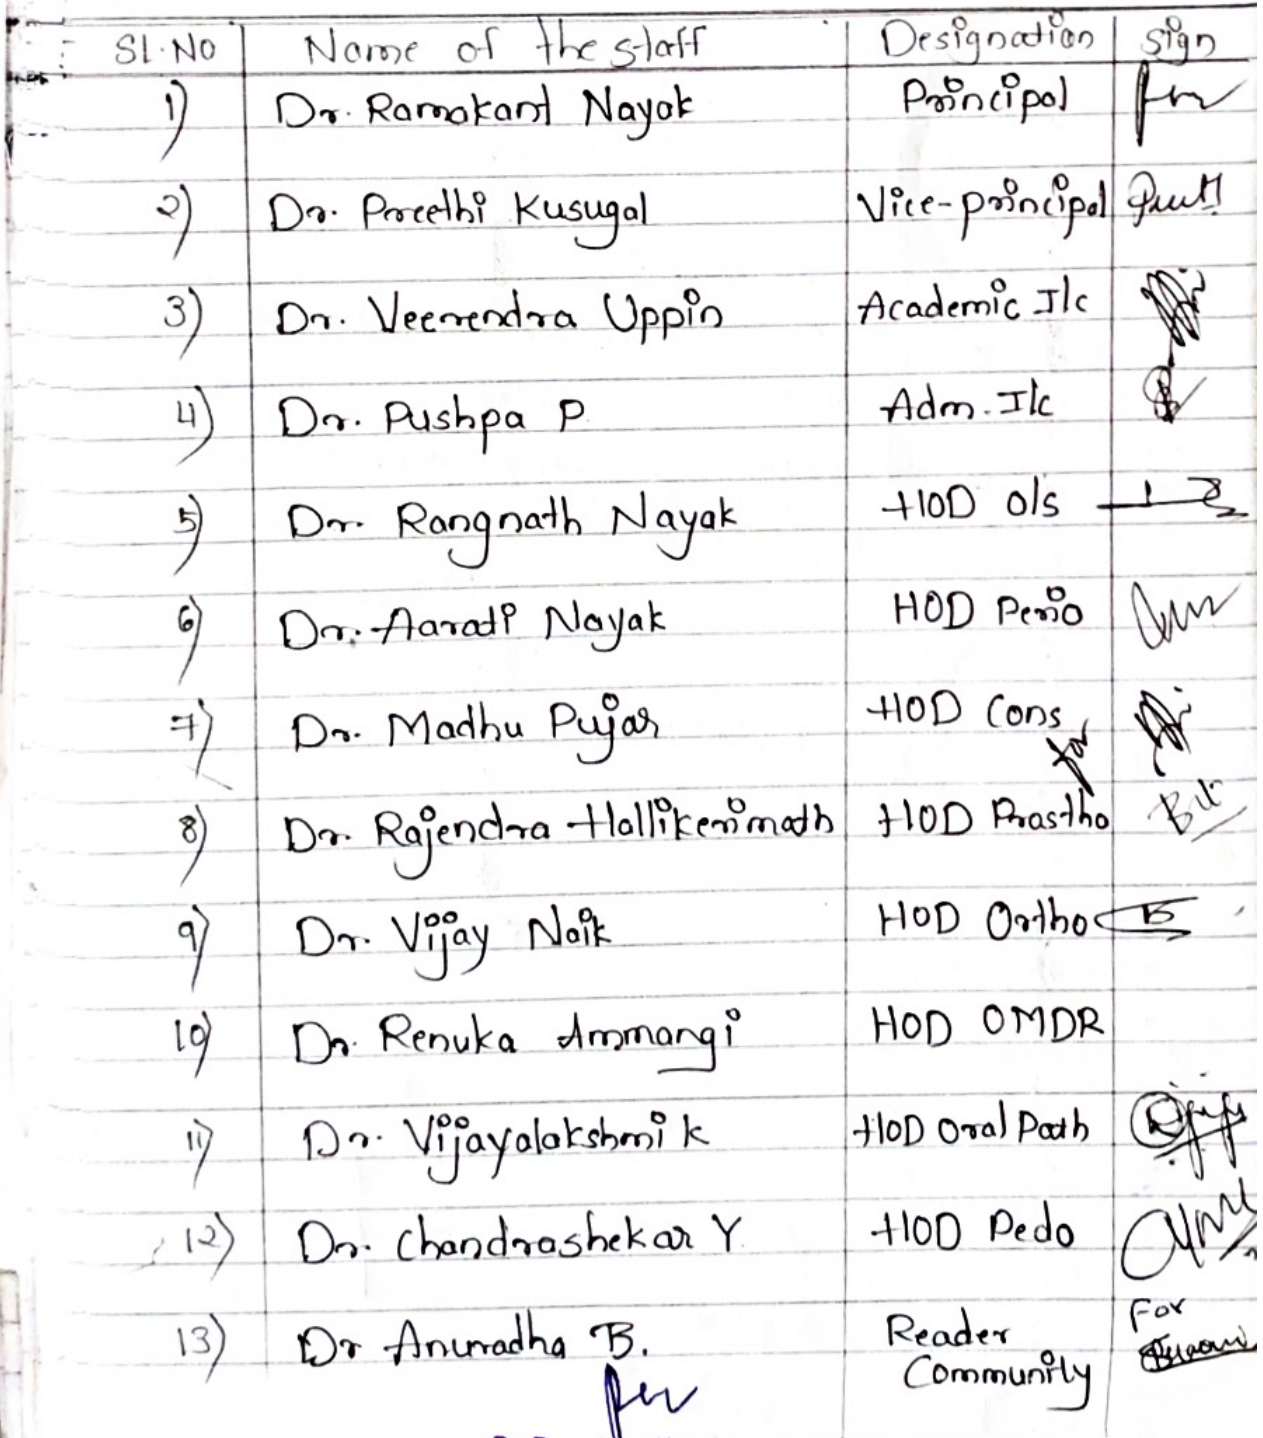 Sl.No Name of the staff Designation Sign
1) Dr. Ramakant Nayak Principal
2) Dr. Preethi Kusugal Vice-principal
3) Dr. Veerendra Uppin Academic I/c
4) Dr. Pushpa P. Adm. I/c
5) Dr. Rangnath Nayak HOD O/S
6) Dr. Aarati Nayak HOD Perio
7) Dr. Madhu Pujar HOD Cons
for
8) Dr. Rajendra Hallikerimath HOD Prastho
9) Dr. Vijay Naik HOD Ortho
10) Dr. Renuka Ammangi HOD OMDR
11) Dr. Vijayalakshmi K HOD Oral Path
12) Dr. Chandrashekar Y. HOD Pedo
13) Dr Anuradha B. Reader For
Community